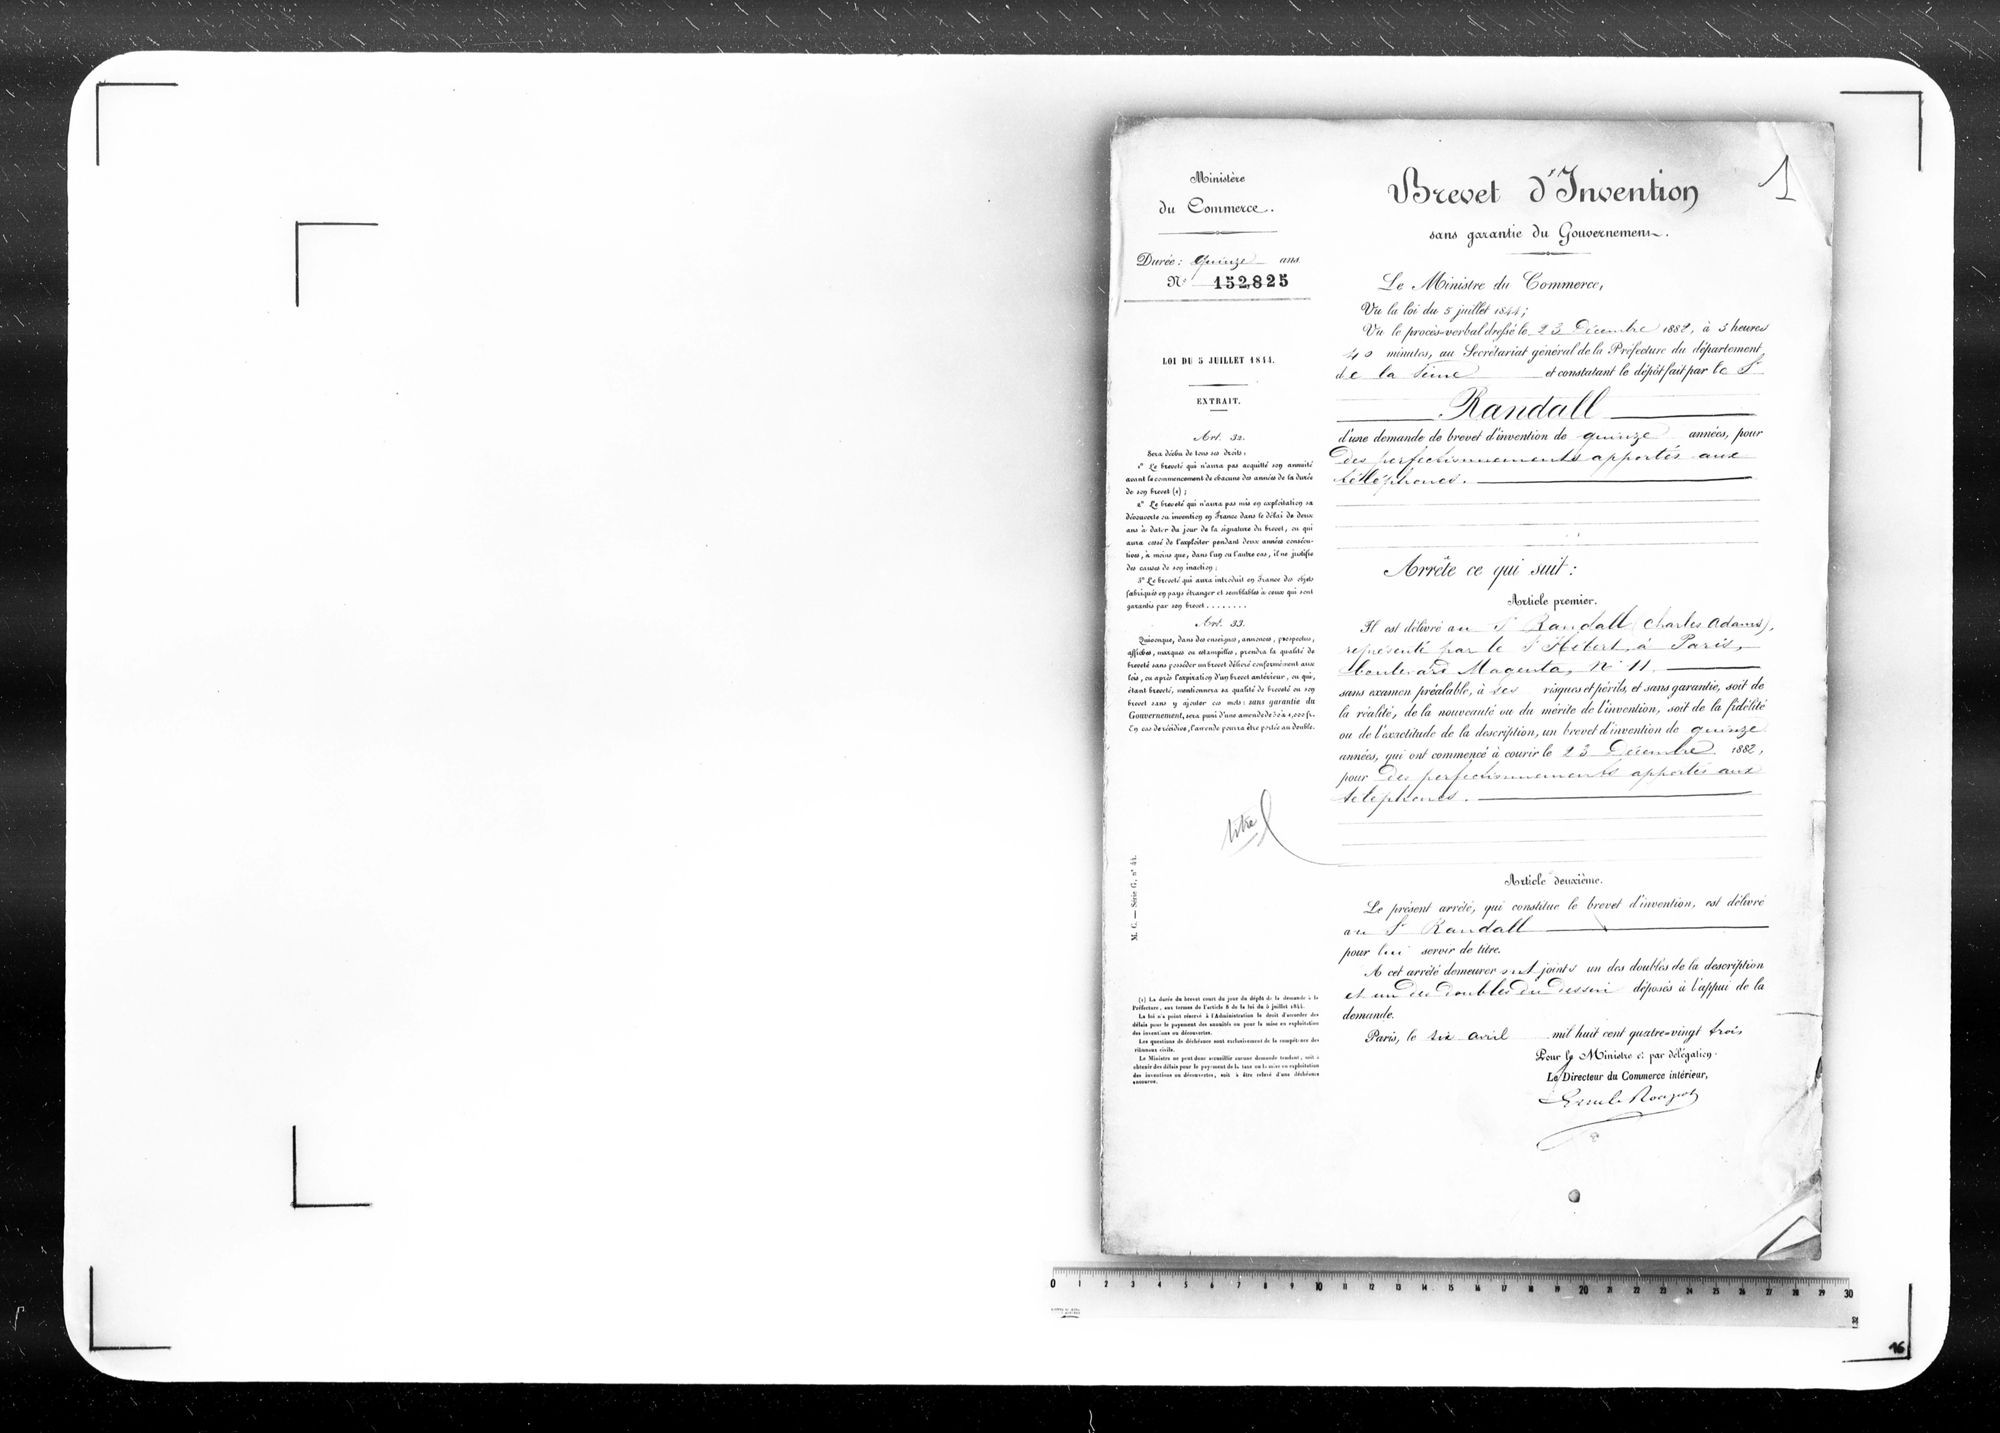 Ministère
du Commerce.
Durée: quinze ans
N° 152,825
LOI DU 5 JUILLET 1844.
EXTRAIT.
Art. 32.
Sera déchu de tous ses droits:
1° Le breveté qui n'aura pas acquitté son annuité
avant le commencement de chacune des années de la durée
de son brevet (1);
2° Le breveté qui n'aura pas mis en exploitation sa
découverte ou invention en France dans le délai de deux
ans à dater du jour de la signature du brevet, ou qui
aura cessé de l'exploiter pendant deux années consécu-
tives, à moins que, dans l'un ou l'autre cas, il ne justifie
des causes de son inaction;
3° Le breveté qui aura introduit en France des objets
fabriqués en pays étranger et semblables à ceux qui sont
garantis par son brevet........
Art. 33.
Quiconque, dans des enseignes, annonces, prospectus,
affiches, marques ou estampilles, prendra la qualité de
breveté sans posséder un brevet délivré conformément aux
lois, ou après l'expiration d'un brevet antérieur, ou qui,
étant breveté, mentionnera sa qualité de breveté ou son
brevet sans y ajouter ces mots: sans garantie du
Gouvernement, sera puni d'une amende de 50 à 1,000 fr.
En cas de récidive, l'amende pourra être portée au double.
titre
M. C. — Série G, n° 44.
(1) La durée du brevet court du jour du dépôt de la demande à la
Préfecture, aux termes de l'article 8 de la loi du 5 juillet 1844.
La loi n'a point réservé à l'Administration le droit d'accorder des
délais pour le payement des annuités ou pour la mise en exploitation
des inventions ou découvertes.
Les questions de déchéance sont exclusivement de la compétence des
tribunaux civils.
Le Ministre ne peut donc accueillir aucune demande tendant, soit à
obtenir des délais pour le payement de la taxe ou la mise en exploitation
des inventions ou découvertes, soit à être relevé d'une déchéance
encourue.
Brevet d'Invention
1
sans garantie du Gouvernement.
Le Ministre du Commerce,
Vu la loi du 5 juillet 1844;
Vu le procès-verbal dressé le 23 Décembre 1882, à 3 heures
40 minutes, au Secrétariat général de la Préfecture du département
de la Seine et constatant le dépôt fait par le Sr
Randall
d'une demande de brevet d'invention de quinze années, pour
des perfectionnements apportés aux
téléphones.
Arrête ce qui suit:
Article premier.
Il est délivré au Sr Randall (Charles Adams),
représenté par le Sr Hébert, à Paris,
boulevard Magenta, N° 11.
sans examen préalable, à ses risques et périls, et sans garantie, soit de
la réalité, de la nouveauté ou du mérite de l'invention, soit de la fidélité
ou de l'exactitude de la description, un brevet d'invention de quinze
années, qui ont commencé à courir le 23 Décembre 1882,
pour des perfectionnements apportés aux
téléphones.
Article deuxième.
Le présent arrêté, qui constitue le brevet d'invention, est délivré
au Sr Randall
pour lui servir de titre.
A cet arrêté demeureront joints un des doubles de la description
et un des doubles du dessin déposés à l'appui de la
demande.
Paris, le six avril mil huit cent quatre-vingt trois
Pour le Ministre et par délégation.
Le Directeur du Commerce intérieur,
0 1 2 3 4 5 6 7 8 9 10 11 12 13 14 15 16 17 18 19 20 21 22 23 24 25 26 27 28 29 30
16